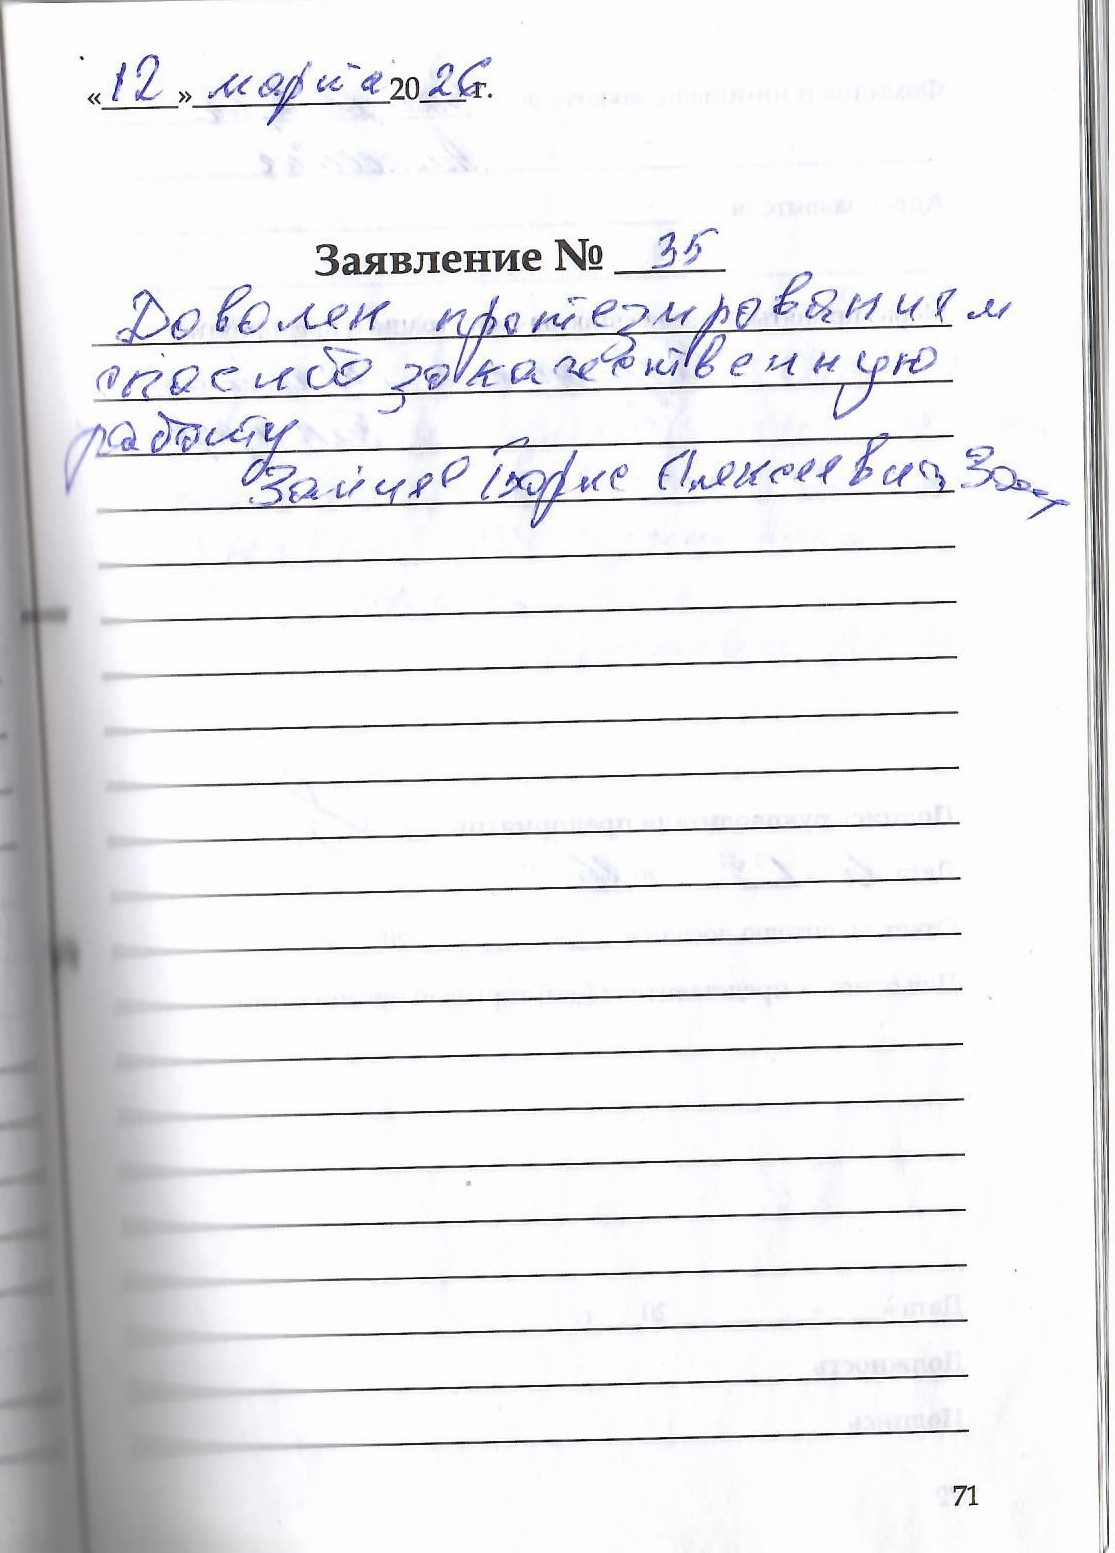 «12» марта 2026 г.
Заявление № 35
Доволен протезированием
спасибо за качественную
работу
Зайцев Борис Алексеевич
71